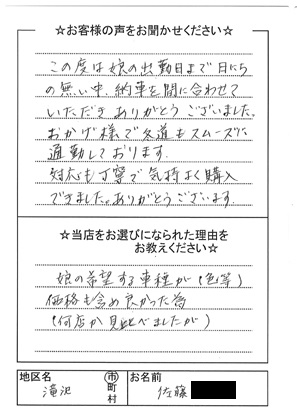 ☆お客様の声をお聞かせください☆
この度は娘の出勤日まで日にち
の無い中、納車を間に合わせて
いただきありがとうございました。
おかげ様で冬道もスムーズに
通勤しております。
対応も丁寧で気持よく購入
できました。ありがとうございます。
☆当店をお選びになられた理由を
お教えください☆
娘の希望する車種が(色等)
価格も含め良かった為
(何店か見比べましたが)
地区名 市町村 お名前
滝沢 佐藤